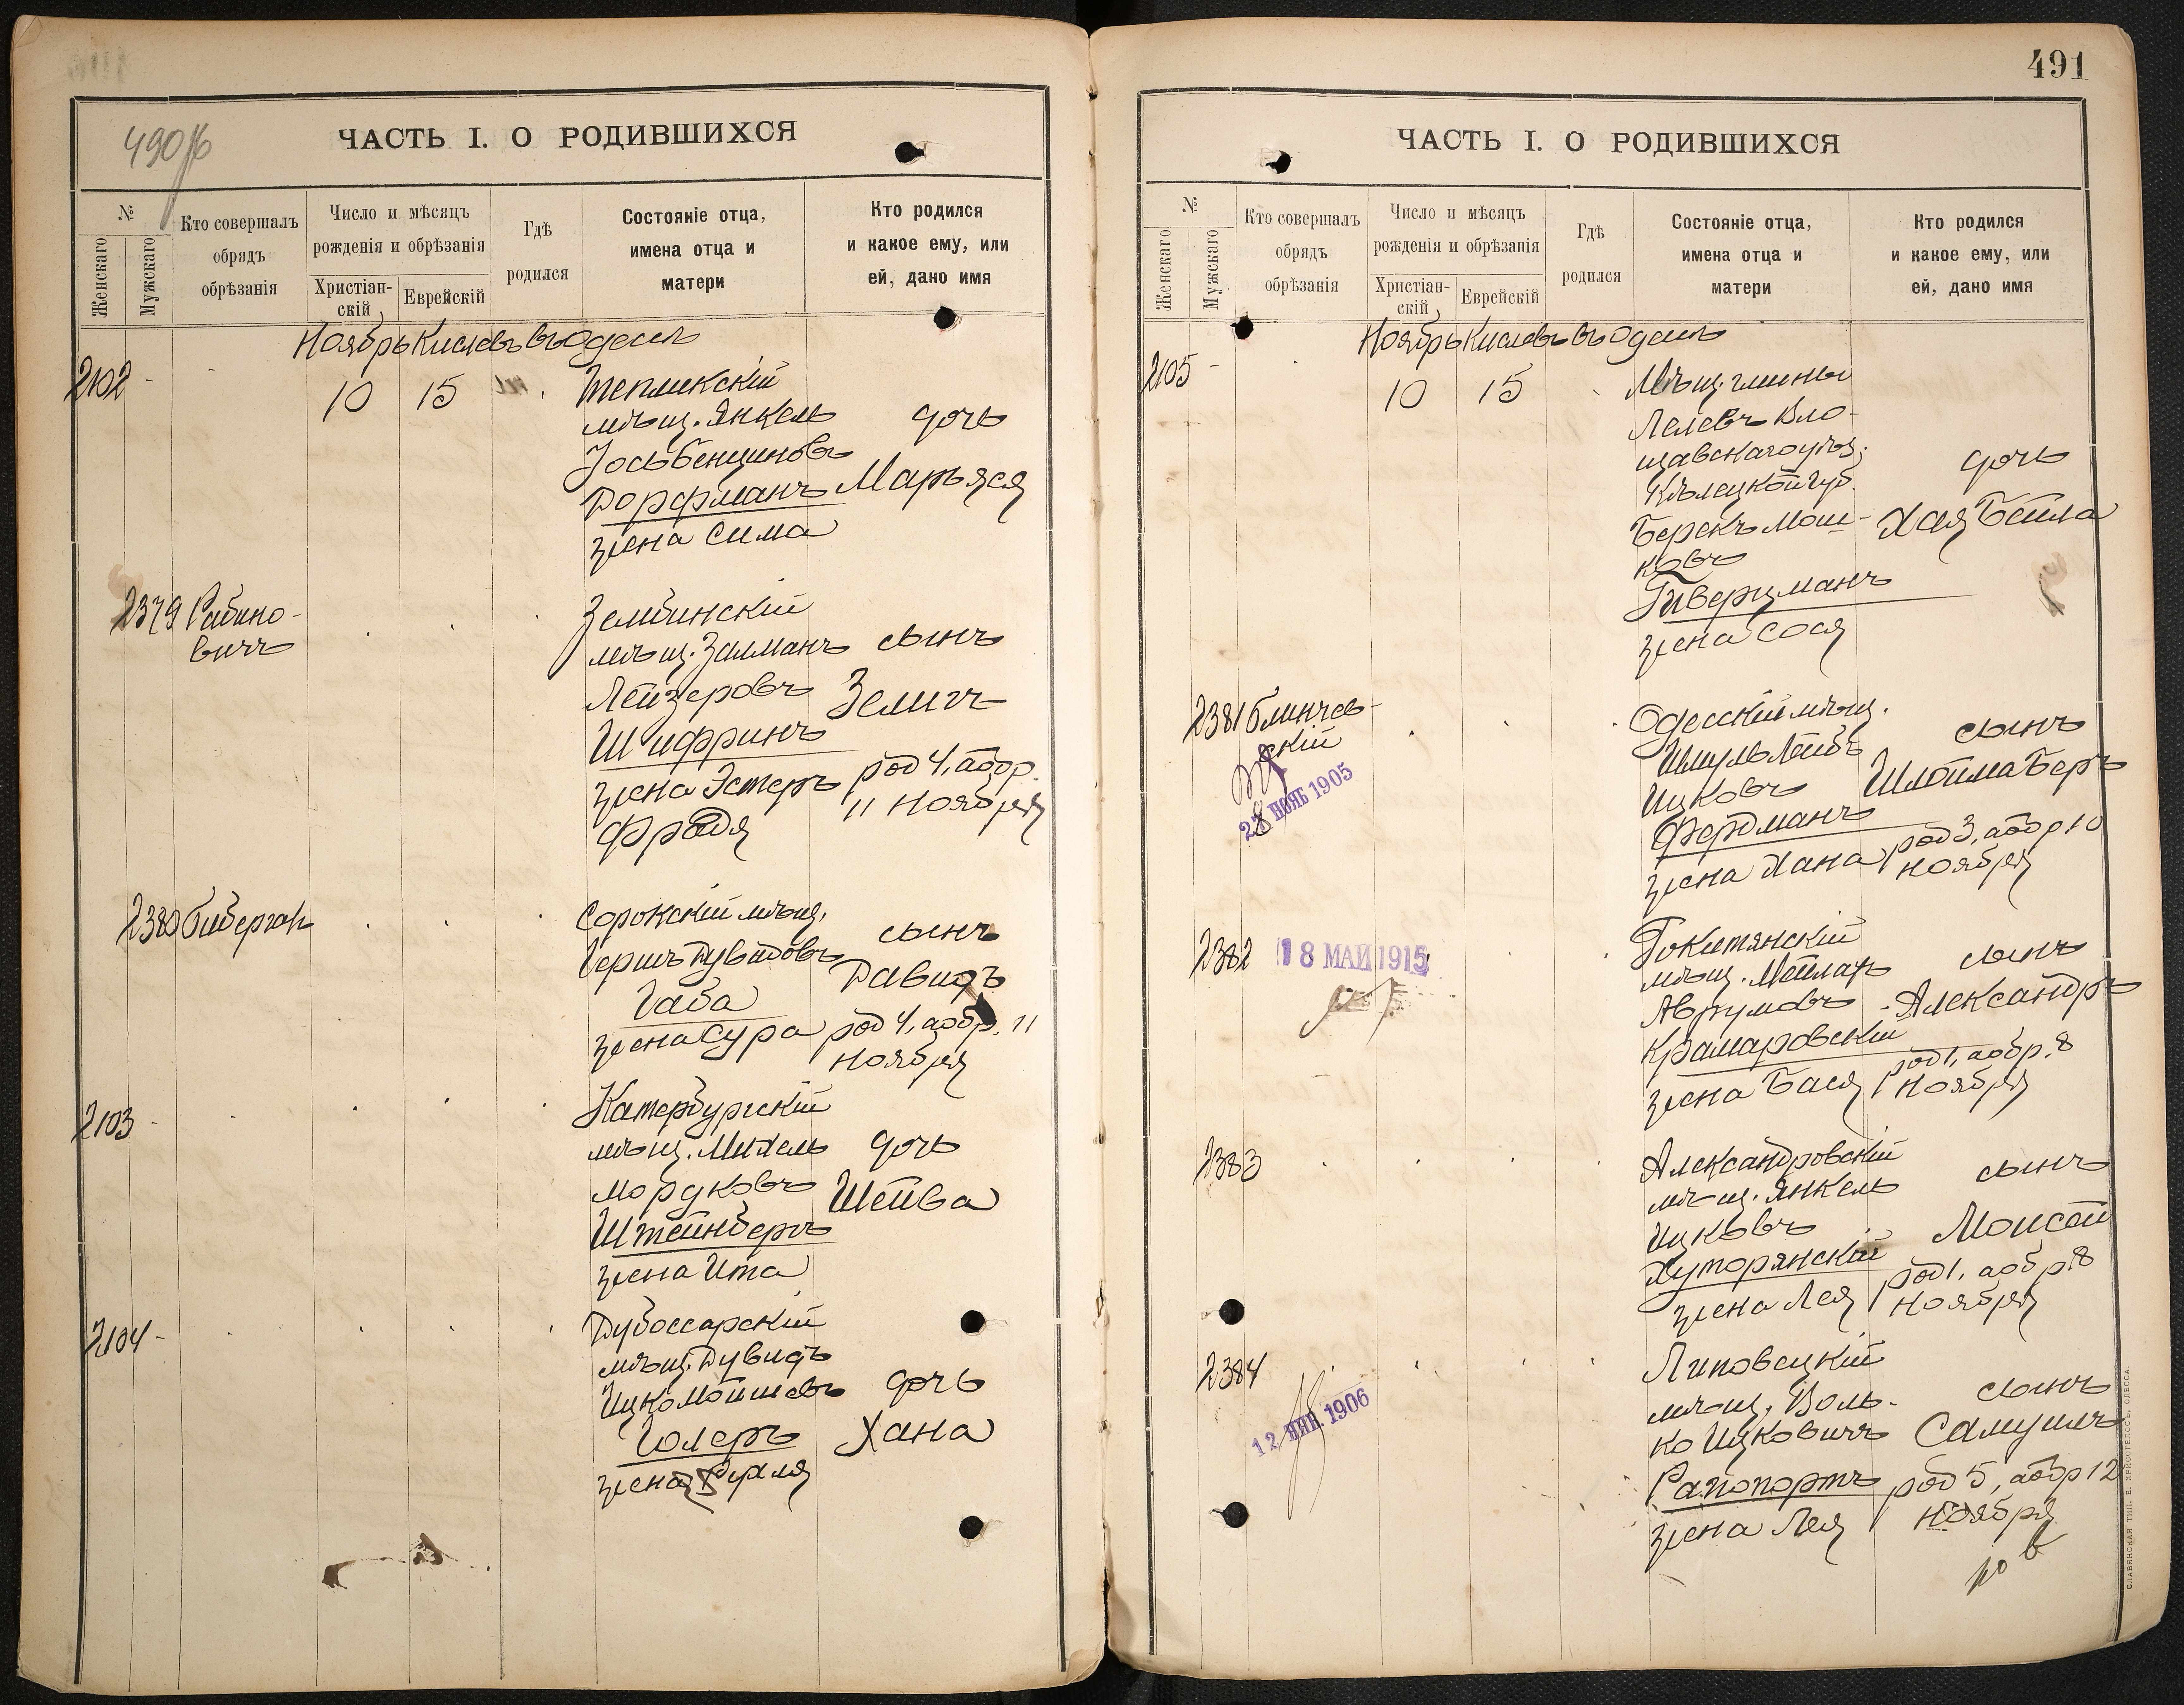 490
ЧАСТЬ I. О РОДИВШИХСЯ
№
Женскаго
Мужскаго
Кто совершалъ
обрядъ
обрѣзанія
Число и мѣсяцъ
рожденія и обрѣзанія
Христіан-
скій
Еврейскій
Гдѣ
родился
Состояніе отца,
имена отца и
матери
Кто родился
и какое ему, или
ей, дано имя
Ноябрь Кислевъ въ Одессѣ
2102 - 10 15
Тепликскій
мѣщ. Янкель
Іось Бенціновъ
Дорфманъ
жена Сима
дочь
Марьяся
2379 Рабино-
вичъ
Зембинскій
мѣщ. Залманъ
Лейзеровъ
Шифринъ
жена Эстеръ
Фрейдя
сынъ
Зелигъ
род 4, а обр.
11 Ноября
2380 Биберган
Сорокскій мѣщ.
Гершъ Дувидовъ
Габа
жена Сура
сынъ
Давидъ
род 4, а обр. 11
Ноября
2103 -
Катербургскій
мѣщ. Михель
Мордковъ
Штейнбергъ
жена Ита
дочь
Шейва
2104 -
Дубоссарскій
мѣщ. Дувидъ
Ицко Мойшевъ
Голеръ
жена Рухля
дочь
Хана
491
ЧАСТЬ I. О РОДИВШИХСЯ
№
Женскаго
Мужскаго
Кто совершалъ
обрядъ
обрѣзанія
Число и мѣсяцъ
рожденія и обрѣзанія
Христіан-
скій
Еврейскій
Гдѣ
родился
Состояніе отца,
имена отца и
матери
Кто родился
и какое ему, или
ей, дано имя
Ноябрь Кислевъ въ Одессѣ
2105 - 10 15
Мѣщ. гмины
Лелевъ Вло-
щавскаго уѣз.
Кѣлецкой губ.
Берекъ Мош-
ковъ
Гиверцманъ
жена Сося
дочь
Хая Бейла
2381 Блинчев-
скій
28 НОЯБ 1905
Одесскій мѣщ.
Шмуль Лейбъ
Ицковъ
Фердманъ
жена Хана
сынъ
Шлойма Беръ
род 3, а обр 10
Ноября
2382
18 МАЙ 1915
мѣщ. Мейлахъ
Аврумовъ
Крамаровскій
жена Бася
сынъ
Александръ
род 1, а обр. 8
Ноября
2383
Александровскій
мѣщ. Янкель
Ицковъ
Хуторянскій
жена Лея
сынъ
Моисей
род 1, а обр 8
Ноября
2384
12 ЯНВ. 1906
Липовецкій
мѣщ. Воль-
ко Ицковичъ
Рапопортъ
жена Лея
сынъ
Самуилъ
род 5, а обр 12
Ноября
СЛАВЯНСКАЯ ТИП. Е. ХРИСОГЕЛОСЪ, ОДЕССА.